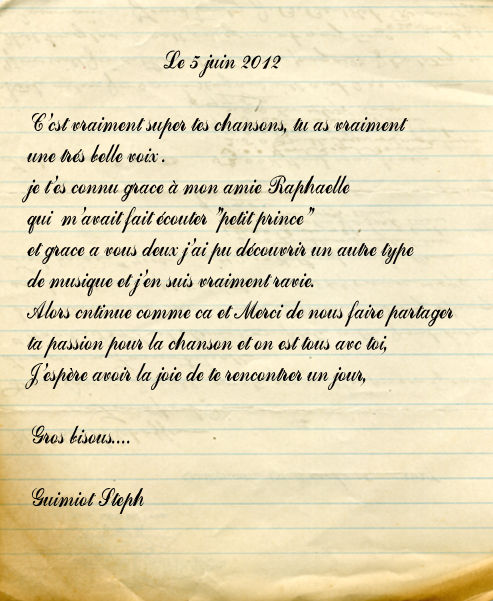 Le 5 juin 2012
C'est vraiment super tes chansons, tu as vraiment
une trés belle voix .
je t'es connu grace à mon amie Raphaelle
qui m'avait fait écouter "petit prince"
et grace a vous deux j'ai pu découvrir un autre type
de musique et j'en suis vraiment ravie.
Alors cntinue comme ca et Merci de nous faire partager
ta passion pour la chanson et on est tous avc toi,
J'espère avoir la joie de te rencontrer un jour,
Gros bisous....
Guimiot Steph